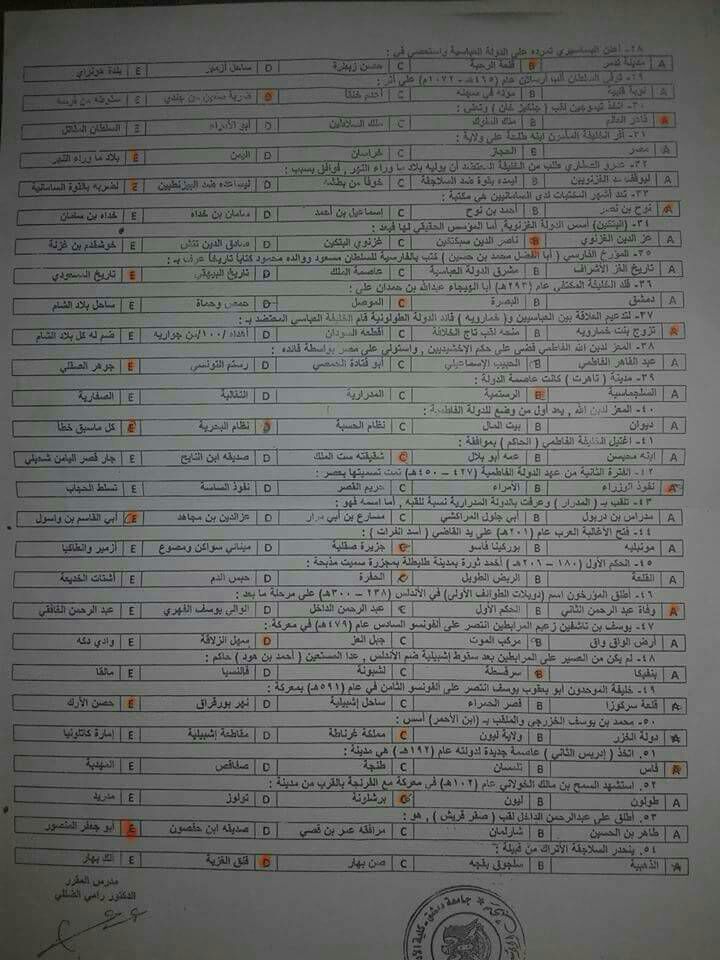 ٢٨- أعلن البساسيري تمرده على الدولة العباسية واستعصى في :
A مدينة تدمر B قلعة الرحبة C حسن زيطرة D ساحل أزمير E بلدة
٢٩- توفي السلطان ألب أرسلان عام (٤٦٥هـ - ١٠٧٢م) على أثر :
A نوبة قلبية B C D E
٣٠- اتخذ تيموجين لقب ( جنكيز خان ) وتعني :
A قاهر العالم B ملك الملوك C ملك السلاطين D أبو الأمراء E السلطان المقاتل
٣١- أقر الخليفة المأمون ابنه طلحة على ولاية :
A مصر B الحجاز C خراسان D اليمن E بلاد ما وراء النهر
٣٢- عمرو الصفاري طلب من الخليفة المعتضد أن يوليه بلاد ما وراء النهر , فوافق بسبب :
A ليوقف الغزنويين B ليمده بقوة ضد السلاجقة C خوفاً من بطشه D ليساعده ضد البيزنطيين E لضربه بالقوة السامانية
٣٣- تعد أشهر المكتبات لدى السامانيين هي مكتبة :
A نوح بن نصر B أحمد بن نوح C إسماعيل بن أحمد D سامان بن خداه E خداه بن سامان
٣٤- (البتكين) أسس الدولة الغزنوية, أما المؤسس الحقيقي لها فيعد :
A عز الدين الغزنوي B ناصر الدين سبكتكين C غزنوي البتكين D صادق الدين تتش E خوشقدم بن غزنة
٣٥- المؤرخ الفارسي ( أبا الفضل محمد بن حسين ) كتب بالفارسية للسلطان مسعود ووالده محمود كتاباً تاريخاً عرف بـ :
A تاريخ الغز الأشراف B مشرق الدولة العباسية C عاصمة الملك D تاريخ البيهقي E تاريخ المسعودي
٣٦- قلد الخليفة المكتفي عام (٢٩٣هـ) أبا الهيجاء عبدالله بن حمدان على :
A دمشق B البصرة C الموصل D حمص وحماة E ساحل بلاد الشام
٣٧- لتدعيم العلاقة بين العباسيين و( خمارويه ) قائد الدولة الطولونية قام الخليفة العباسي المعتضد بـ :
A تزوج بنت خمارويه B منحه لقب تاج الخلافة C أقطعه السودان D أهداه /١٠٠/من جواريه E ضم له كل بلاد الشام
٣٨- المعز لدين الله الفاطمي قضى على حكم الإخشيديين , واستولى على مصر بواسطة قائده :
A عبد القاهر الفاطمي B الحبيب الإسماعيلي C أبو قتادة الحمصي D رستم التونسي E جوهر الصقلي
٣٩- مدينة ( تاهرت ) كانت عاصمة الدولة :
A السلجماسية B الرستمية C المدرارية D E الصفارية
٤٠- المعز لدين الله , يعد أول من وضع للدولة الفاطمية :
A ديوان B بيت المال C نظام الحسبة D نظام البحرية E كل ماسبق خطأ
٤١- اغتيل الخليفة الفاطمي ( الحاكم ) بموافقة :
A ابنه محيسن B عمه أبو بلال C شقيقته ست الملك D صديقه ابن النايح E جار قصر اليامن
٤٢- الفترة الثانية من عهد الدولة الفاطمية (٤٢٧ - ٤٥٠هـ) تمت تسميتها بعصر :
A نفوذ الوزراء B الأمراء C حريم القصر D نفوذ الساسة E تسلط الحجاب
٤٣- تلقب بـ ( المدرار ) وعرفت بالدولة المدرارية نسبة للقبه , أما اسمه فهو :
A مدراس بن دربول B أبي جلول المراكشي C بن أبي مرار D عزالدين بن مجاهد E أبي القاسم بن واسول
٤٤- فتح الأغالبة العرب عام (٢٠١هـ) على يد القاضي ( أسد الفرات ) :
A مونبليه B بوركينا فاسو C جزيرة صقلية D مينائي سواكن ومصوع E أزمير وانطاكيا
٤٥- الحكم الأول (١٨٠ - ٢٠٦هـ) أخمد ثورة بمدينة طليطلة بمجزرة سميت مذبحة :
A القلعة B الربض الطويل C الحفرة D حبس الدم E أشتات الخديعة
٤٦- أطلق المؤرخون اسم (دويلات الطوائف الأولى) في الأندلس (٢٣٨ - ٣٠٠هـ) على مرحلة ما بعد :
A وفاة عبد الرحمن الثاني B الحكم الأول C عبد الرحمن الداخل D الوالي يوسف الفهري E عبد الرحمن الغافقي
٤٧- يوسف بن تاشفين زعيم المرابطين انتصر على ألفونسو السادس عام (٤٧٩هـ) في معركة :
A أرض الواق واق B مركب الموت C جبل العز D سهل الزلاقة E وادي دكه
٤٨- لم يكن من العسير على المرابطين بعد سقوط إشبيلية ضم الأندلس , عدا المستعين ( أحمد بن هود ) حاكم :
A بنفيكا B سرقسطة C لشبونة D فالنسيا E مالقا
٤٩- خليفة الموحدون أبو يعقوب يوسف انتصر على ألفونسو الثامن في عام (٥٩١هـ) بمعركة :
A قلعة سركوزا B قصر الحمراء C ساحل إشبيلية D نهر بورقراق E حصن الأرك
٥٠- محمد بن يوسف الخزرجي والملقب بـ (ابن الأحمر) أسس :
A دولة الخزر B ولاية ليون C مملكة غرناطة D مقاطعة إشبيلية E إمارة كاتلونيا
٥١- اتخذ ( إدريس الثاني ) عاصمة جديدة لدولته عام (١٩٢هـ) هي مدينة :
A فاس B تلمسان C طنجة D صفاقص E المهدية
٥٢- استشهد السمح بن مالك الخولاني عام (١٠٢هـ) في معركة مع الفرنجة بالقرب من مدينة :
A طولون B ليون C برشلونة D تولوز E مدريد
٥٣- أطلق على عبدالرحمن الداخل لقب ( صقر قريش ) , هو :
A طاهر بن الحسين B شارلمان C مرافقه عمر بن قصي D صديقه ابن حفصون E أبو جعفر المنصور
٥٤- ينحدر السلاجقة الأتراك من قبيلة :
A الذهبية B سلجوق بقجه C صن بهار D قنق الغزية E الك بهار
مدرس المقرر
الدكتور رامي الضللي
جامعة دمشق - كلية الآداب